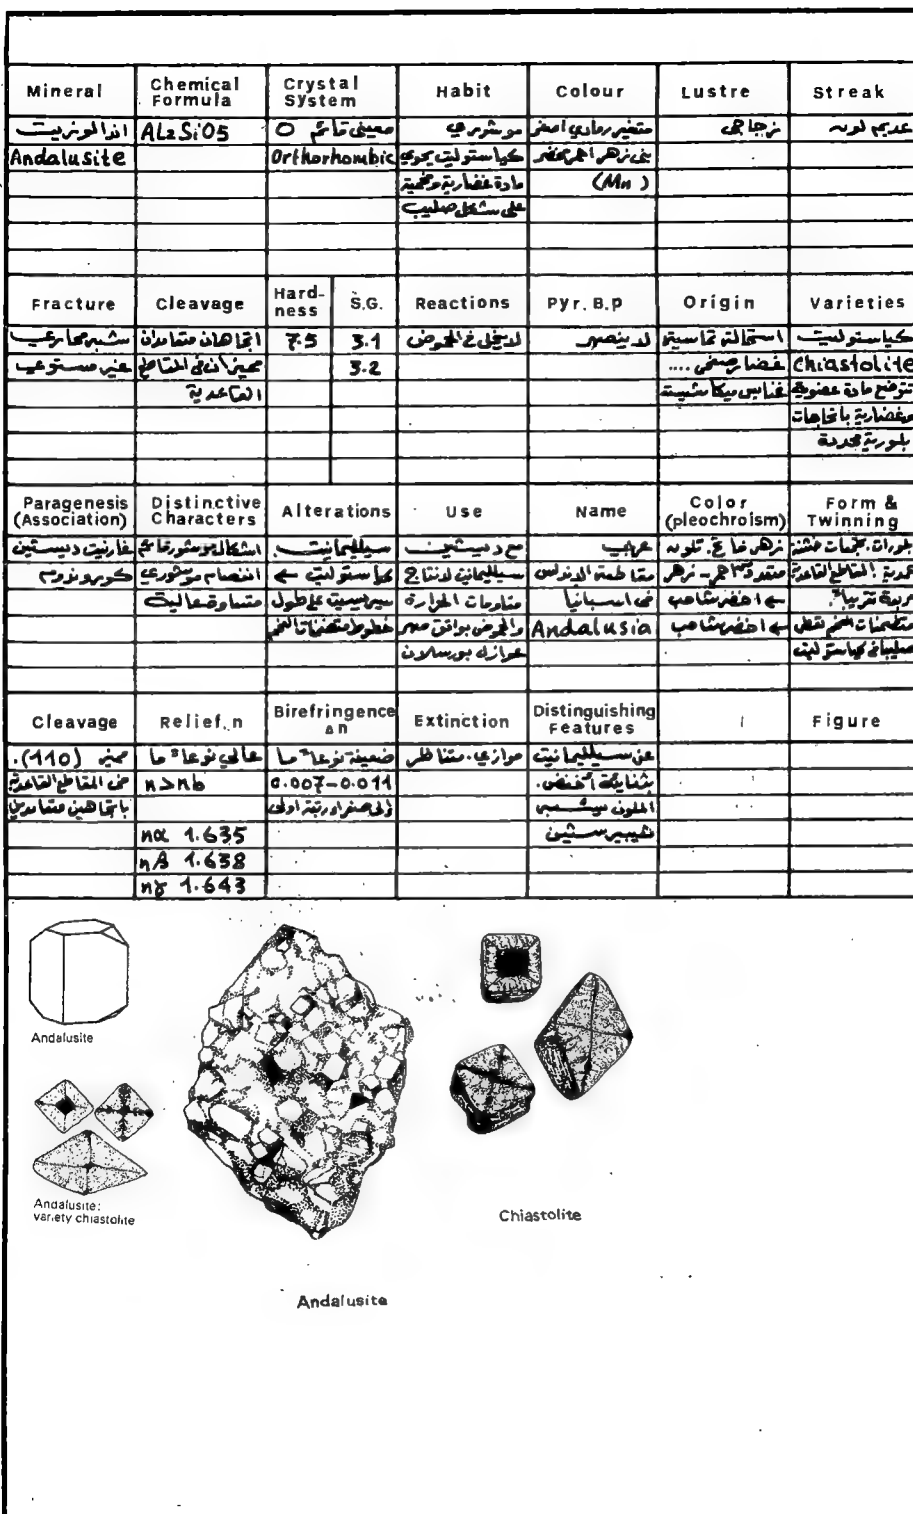 Mineral | Chemical Formula | Crystal System | Habit | Colour | Lustre | Streak
اندالوزيت | AL2SiO5 | معيني قائم O | موشوري | متغير رمادي اصفر | زجاجي | عديم لون
Andalusite | Orthorhombic | كياستوليت يحوي | بني زهر احمر خضر
مادة غضارية وفحمية | (Mn)
على شكل صليب
Fracture | Cleavage | Hard-ness | S.G. | Reactions | Pyr. B.p | Origin | Varieties
شبه محاري | اتجاهان متعامدان | 7.5 | 3.1 | لا ينحل في الحموض | لا ينصهر | استحالة تماسية | كياستوليت
غير مستوي | مميزان في المقاطع | 3.2 | غضار صفحي .... | Chiastolite
القاعدية | غنايس ميكاشيست | تتوضع مادة عضوية
وغضارية باتجاهات
بلورية محددة
Paragenesis (Association) | Distinctive Characters | Alterations | Use | Name | Color (pleochroism) | Form & Twinning
غارنيت ديستين | اشكال موشور قائم | سيلليمانيت | مع ديستين | زهر فاتح. تلون | بلورات. تجمعات خشنة
كوروندوم | انفصام موشوري | كياستوليت ← | سيلليمانيت لانتاج | مقاطعة الاندلس | متعدد احمر - زهر | عمدية. المقاطع القاعدية
متساوة عالية | سيرسيت على طول | مقاومات الحرارة | في اسبانيا | ← اخضر شاحب | مربعة تقريباً.
خطوط متضمنات الفحم | والحموض بواتق صهر | Andalusia | ← اخضر شاحب | متضمنات الفحم تعطي
عوازل بورسلان | صليبا في كياستوليت
Cleavage | Relief, n | Birefringence Δn | Extinction | Distinguishing Features | Figure
مميز (110). | عالي نوعاً ما | ضعيفة نوعاً ما | موازي. متناظر | عن سيلليمانيت
في المقاطع القاعدية | n>nb | 0.007-0.011 | بثنائية أخفض.
باتجاهين متعامدين | الى صفراء رتبة اولى | الملون يشبه
nα 1.635 | هيبرستين
nβ 1.638
nγ 1.643
Andalusite
Andalusite:
variety chiastolite
Chiastolite
Andalusite